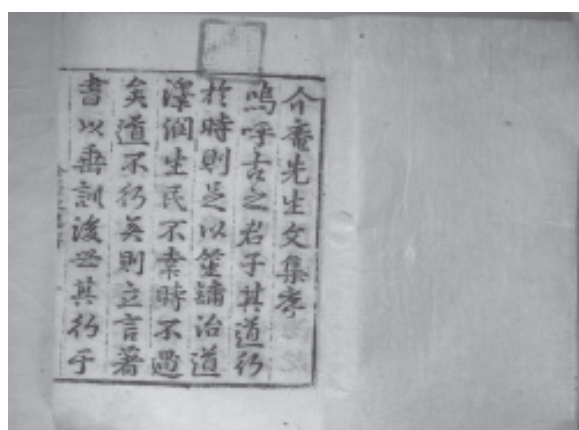 介菴先生文集序
嗚呼古之君子其道行
於時則足以笙鏞治道
澤潤生民不幸時不遇
矣道不行矣則立言著
書以垂訓後世其行于